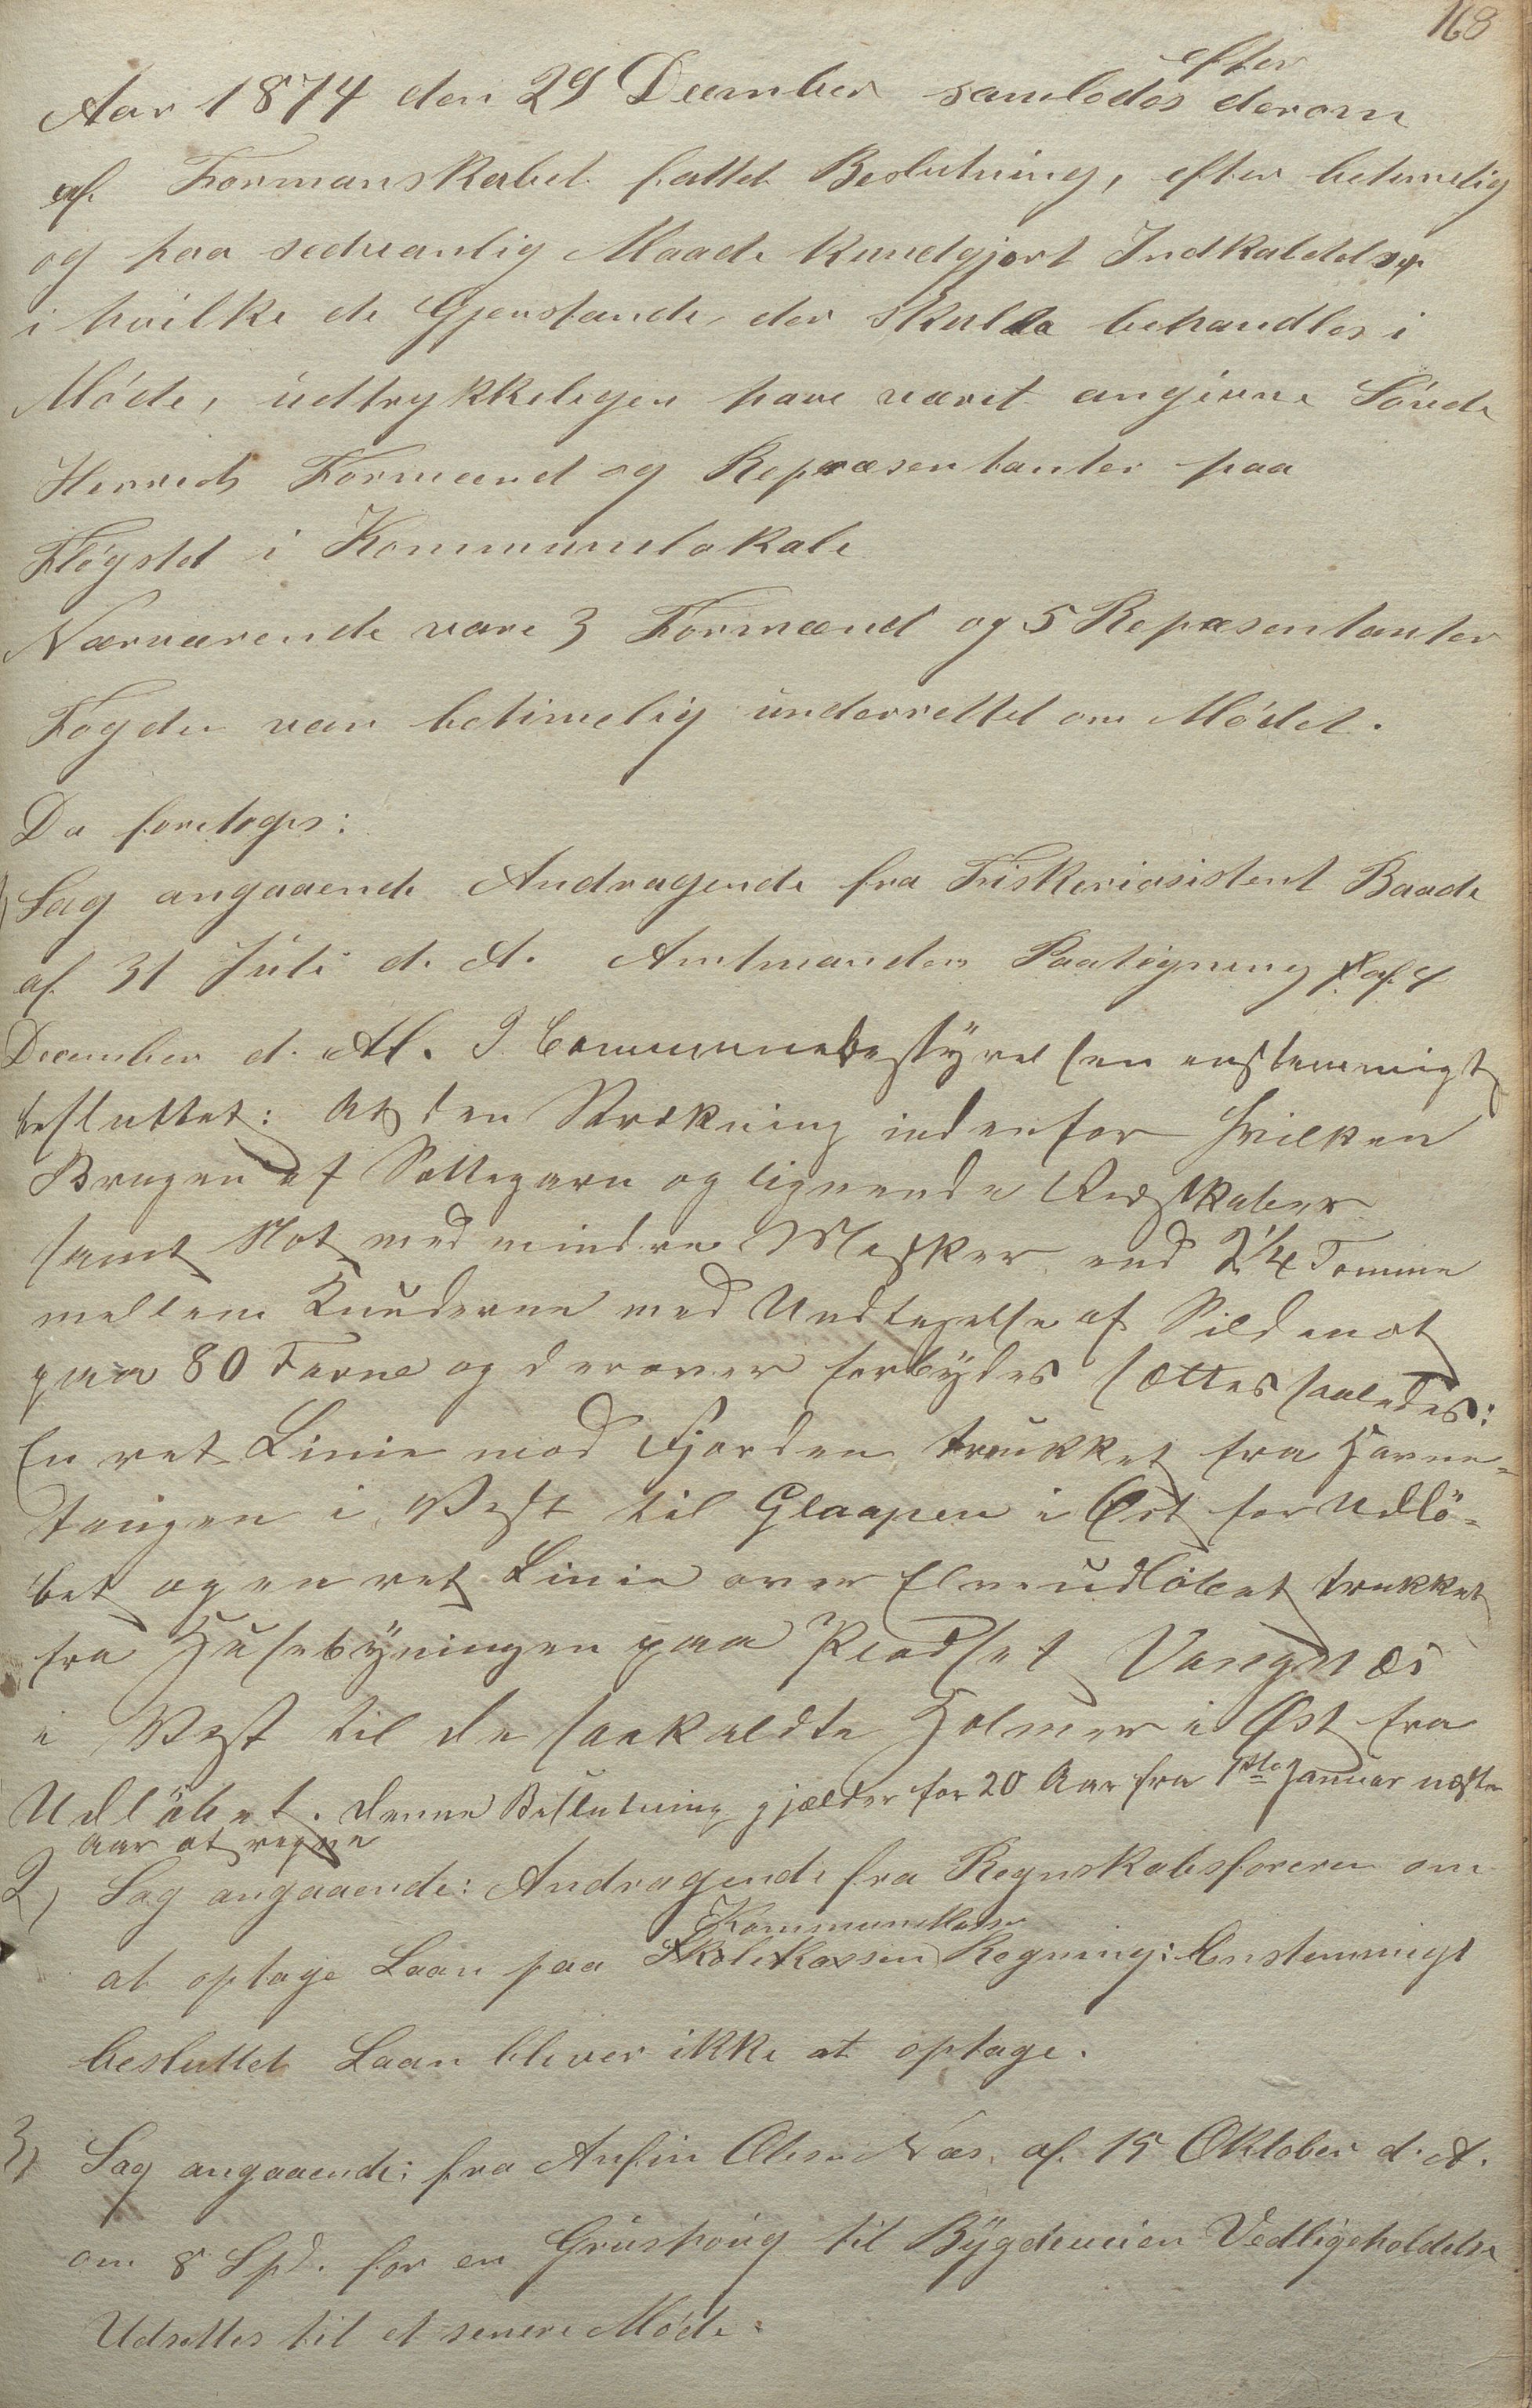 168
efter
Aar 1874 den 29 December samledes derom
af Formanskabet fattet Beslutning, efter betimelig
og paa sedvanlig Maade Kundgjort Indkaldelse
i hvilke de Gjenstande, der skulde behandles i
Møde, udtrykkeligen have været angivne Sövde
Herreds Formænd og Repræsentanter paa
Flögstd i Kommunelokale
Nærværende vare 3 Formænd og 5 Repæsentanter
Fogden var betimelig underrettet om Mødet.
Da foretoges:
Sag angaaende Andragende fra Fiskeriasistent Baade
af 31 Juli d. A. Amtmandens Paategning af 4
December d. A. I Communebestyrelsen enstemmigt
besluttet: At den Strækning indenfor hvilken
Brugen af Settegarn og lignende Redskaber
samt Not med mindre Masker end 2 1/4 Tomme
mellem Knuderne med Undtagelse af Sildenot
paa 80 Favne og derover forbydes sættes saaledes:
En ret Linie mod Fjorden trukket fra Havne-
tangen i Vest til Glaapen i Øst for Udlö-
bet og en ret Linie over Elveudløbet trukket
fra Husebygningen paa Pladset Vangnæs
i Vest til de saakaldte Holmer i Øst fra
Udløbet. Denne Beslutning gjælder for 20 Aar fra 1ste Januar næste
Aar at regne
2) Sag angaaende: Andragende fra Regnskabsføreren om
Kommunekasse
at optage Laan paa Skolekassen Regning: Enstemmigt
besluttet Laan bliver ikke at optage.
3) Sag angaaende: fra Anfin Olsen Næs af 15 Oktober d. A.
om 8 Spd. for en Grushoug til Bygdeveien Vedligeholdelse
Udsettes til et senere Møde.